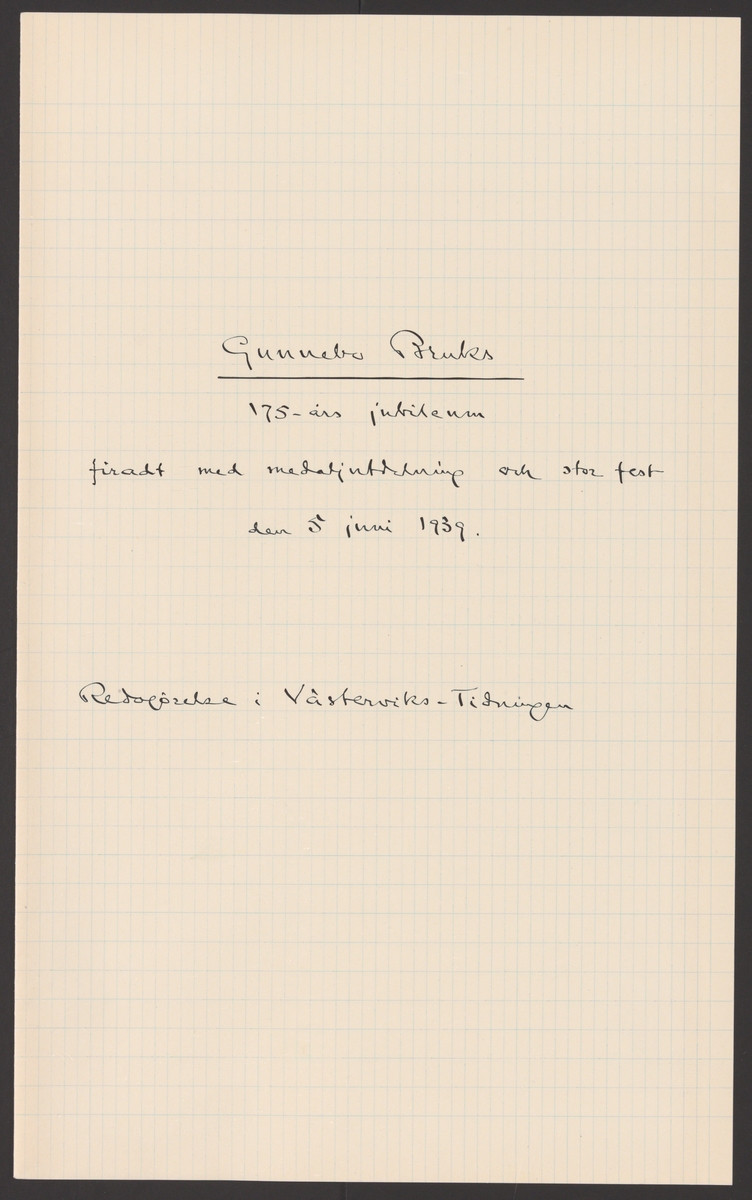 Gunnebo Bruks
175-års jubileum
firadt med medaljutdelning och stor fest
den 5 juni 1939.
Redogörelse i Västerviks-Tidningen